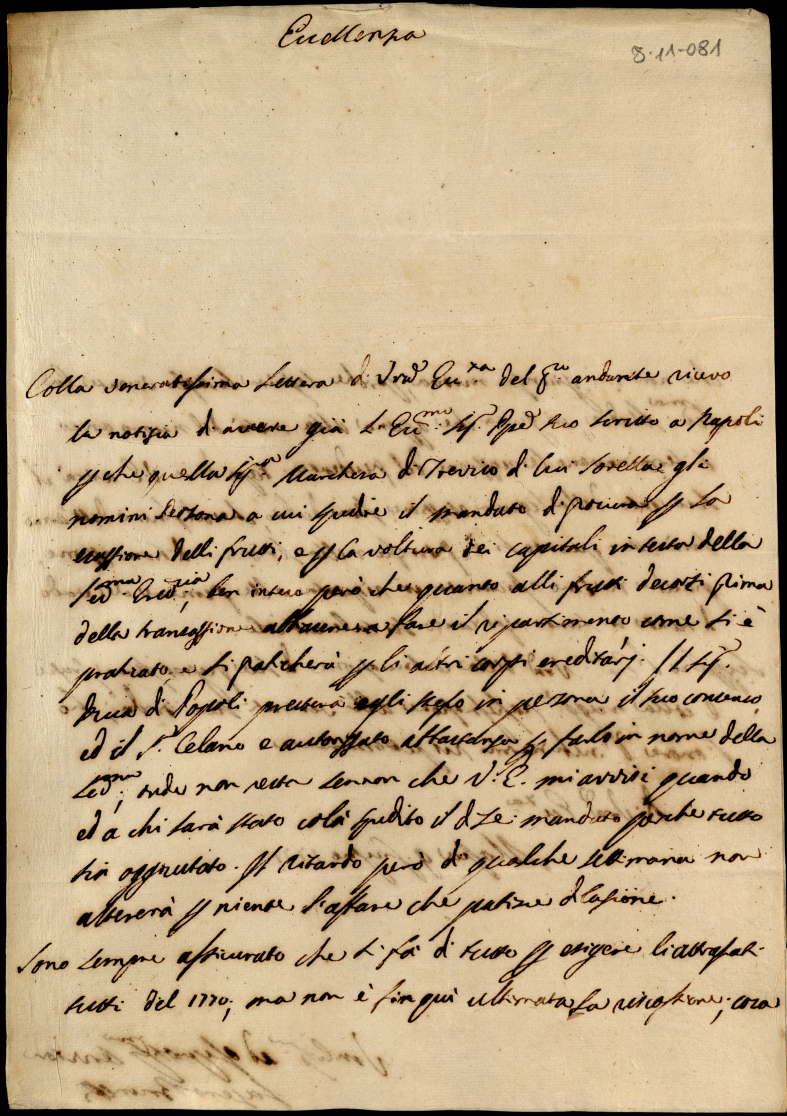 Eccellenza
8-11-081
Colla veneratissima Lettera di Vrã Ecc.za del p.º andante ricevo
la notizia di avere già L'Ecc.mo Sig.r suo scritto a Napoli
che quella Sig.ra Marchesa di Trevico di lui sorella gli
nomini Persona a cui spedire il mandato di procura La
esazzione delli frutti, e la voltura dei capitali in testa della
ben inteso però che quanto alli frutti decorsi prima
della transazzione fare il ripartimento come si è
praticato e si praticherà gli altri corpi ereditarj. Il Sig.r
Duca di Popoli presterà egli stesso in persona il suo consenso
ed il S.r Celano e autorizzato abbastanza farlo in nome della
onde non resta sennon che V. E. mi avvisi quando
ed a chi sarà stato colà spedito il mandato perche tutto
sia aggiustato. Il ritardo però di qualche settimana non
altererà niente l'affare che patisce dilazione.
Sono sempre assicurato che si fa di tutto esigere li attrassati
tutti del 1770; ma non è fin qui ultimata la riscossione; cosa